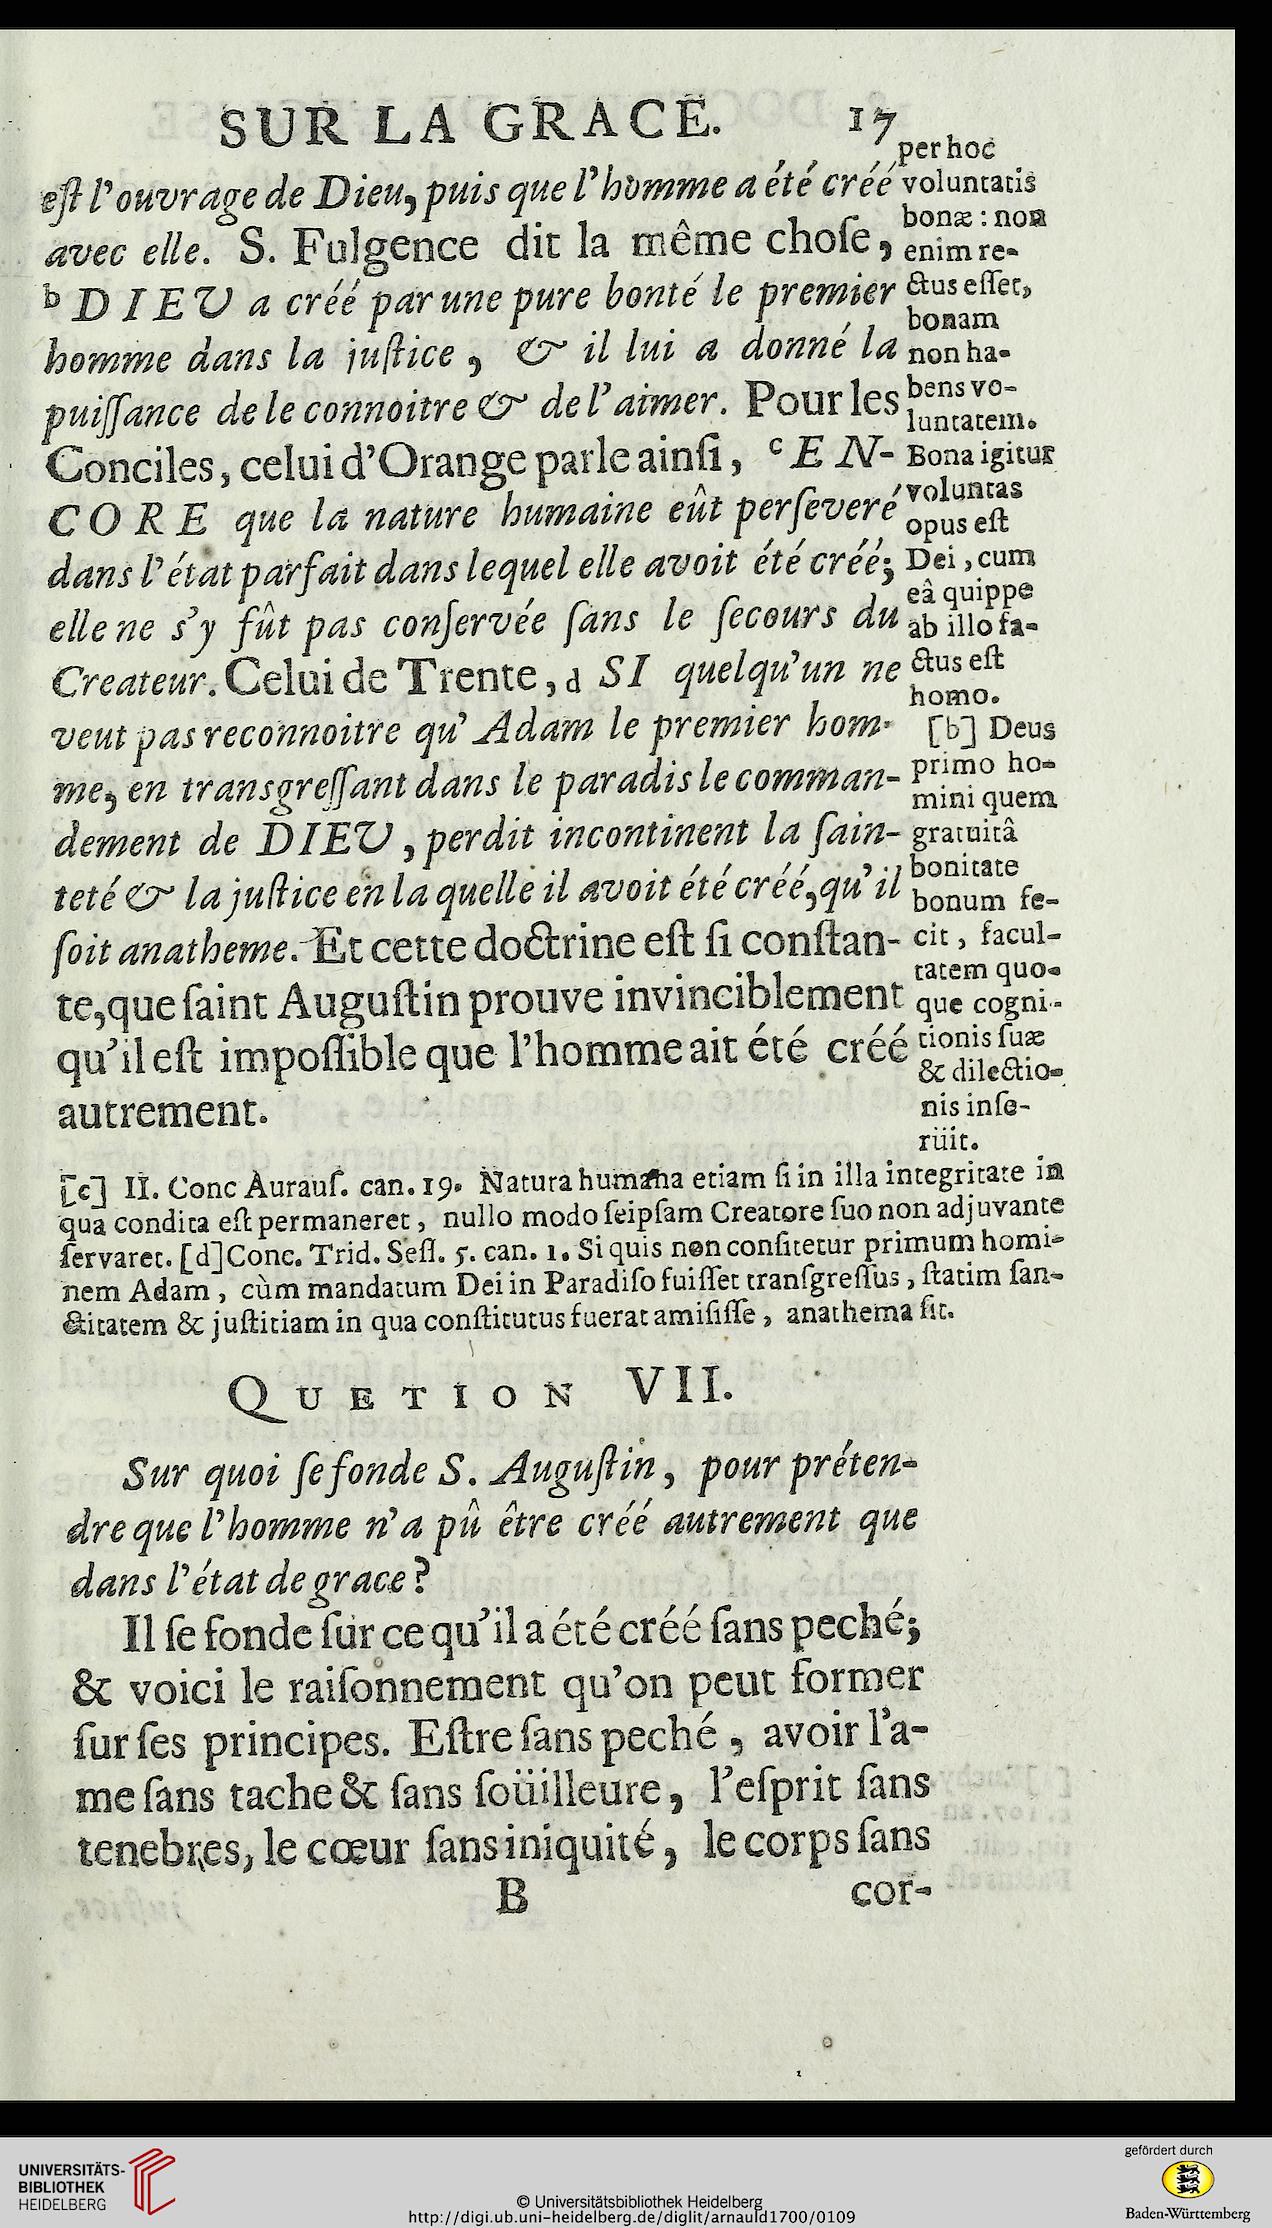 SUR LA GRACE. 17
eſt l'ouvrage de Dieu, puis que l'homme a été créé
avec elle. S. Fulgence dit la même choſe,
b DIEU a créé par une pure bonté le premier
homme dans la juſtice, & il lui a donné la
puiſſance de le connoitre & de l'aimer. Pour les
Conciles, celui d'Orange parle ainſi, c EN-
CORE que la nature humaine eût perſeveré
dans l'état parfait dans lequel elle avoit été créé;
elle ne s'y fût pas conſervée ſans le ſecours du
Createur. Celui de Trente, d SI quelqu'un ne
veut pas reconnoitre qu' Adam le premier hom-
me, en transgreſſant dans le paradis le comman-
dement de DIEU, perdit incontinent la ſain-
teté & la juſtice en la quelle il avoit été créé, qu'il
ſoit anatheme. Et cette doctrine eſt ſi conſtan-
te, que ſaint Auguſtin prouve invinciblement
qu'il eſt impoſſible que l'homme ait été créé
autrement.
per hoc
voluntatis
bonæ : non
enim re-
ctus eſſet,
bonam
non ha-
bens vo-
luntatem.
Bona igitur
voluntas
opus eſt
Dei, cum
eâ quippe
ab illo fa-
ctus eſt
homo.
[b] Deus
primo ho-
mini quem
gratuitâ
bonitate
bonum fe-
cit, facul-
tatem quo-
que cogni-
tionis ſuæ
& dilectio-
nis inſe-
rüit.
[c] II. Conc Aurauſ. can. 19. Natura humana etiam ſi in illa integritate in
qua condita eſt permaneret, nullo modo ſeipſam Creatore ſuo non adjuvante
ſervaret. [d] Conc. Trid. Seſſ. 5. can. 1. Si quis non confitetur primum homi-
nem Adam, cùm mandatum Dei in Paradiſo fuiſſet tranſgreſſus, ſtatim ſan-
ctitatem & juſtitiam in qua conſtitutus fuerat amiſiſſe, anathema ſit.
QUETION VII.
Sur quoi ſe fonde S. Auguſtin, pour préten-
dre que l'homme n'a pû être créé autrement que
dans l'état de grace?
Il ſe fonde ſur ce qu'il a été créé ſans peché;
& voici le raiſonnement qu'on peut former
ſur ſes principes. Eſtre ſans peché, avoir l'a-
me ſans tache & ſans ſoüilleure, l'eſprit ſans
tenebres, le cœur ſans iniquité, le corps ſans
B cor-
UNIVERSITÄTS-
BIBLIOTHEK
HEIDELBERG
© Universitätsbibliothek Heidelberg
http://digi.ub.uni-heidelberg.de/diglit/arnauld1700/0109
gefördert durch
Baden-Württemberg